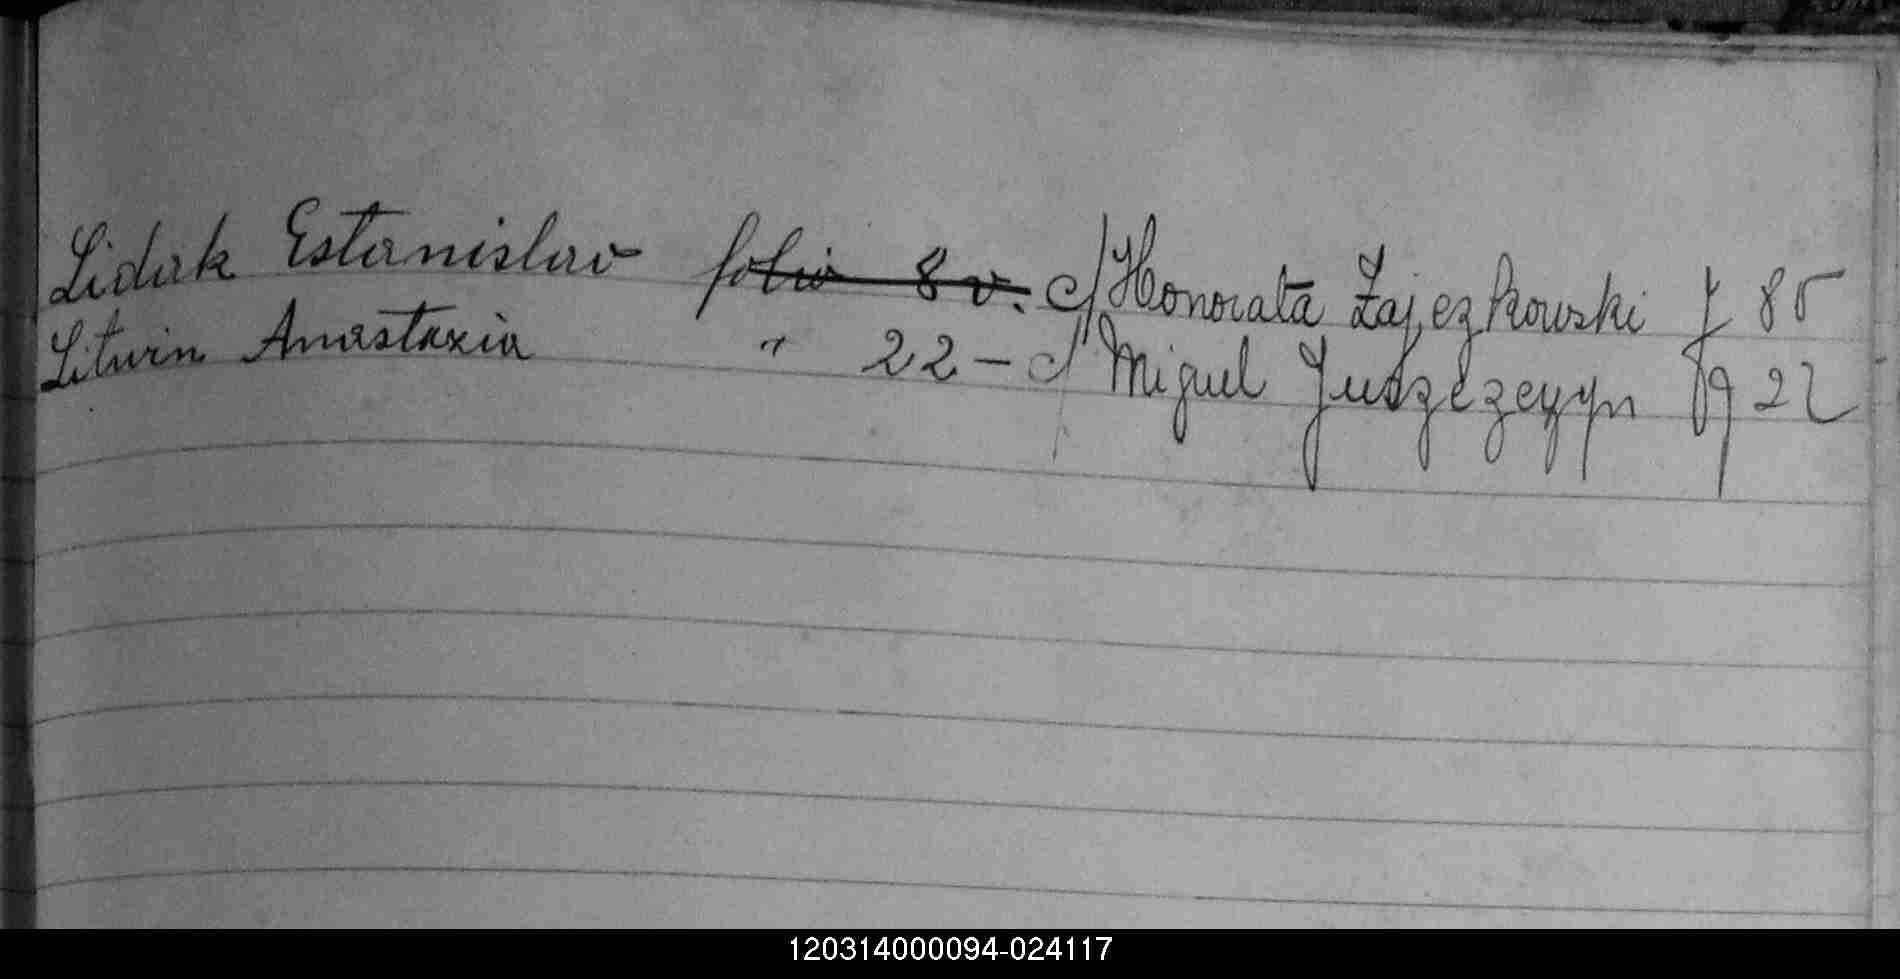 Lidak Estanislao folio 8 v. c/ Honorata Zajezkowski f 85
Litwin Anastaxia " 22 - c/ Miguel Juszezeyyn fg 22
120314000094-024117